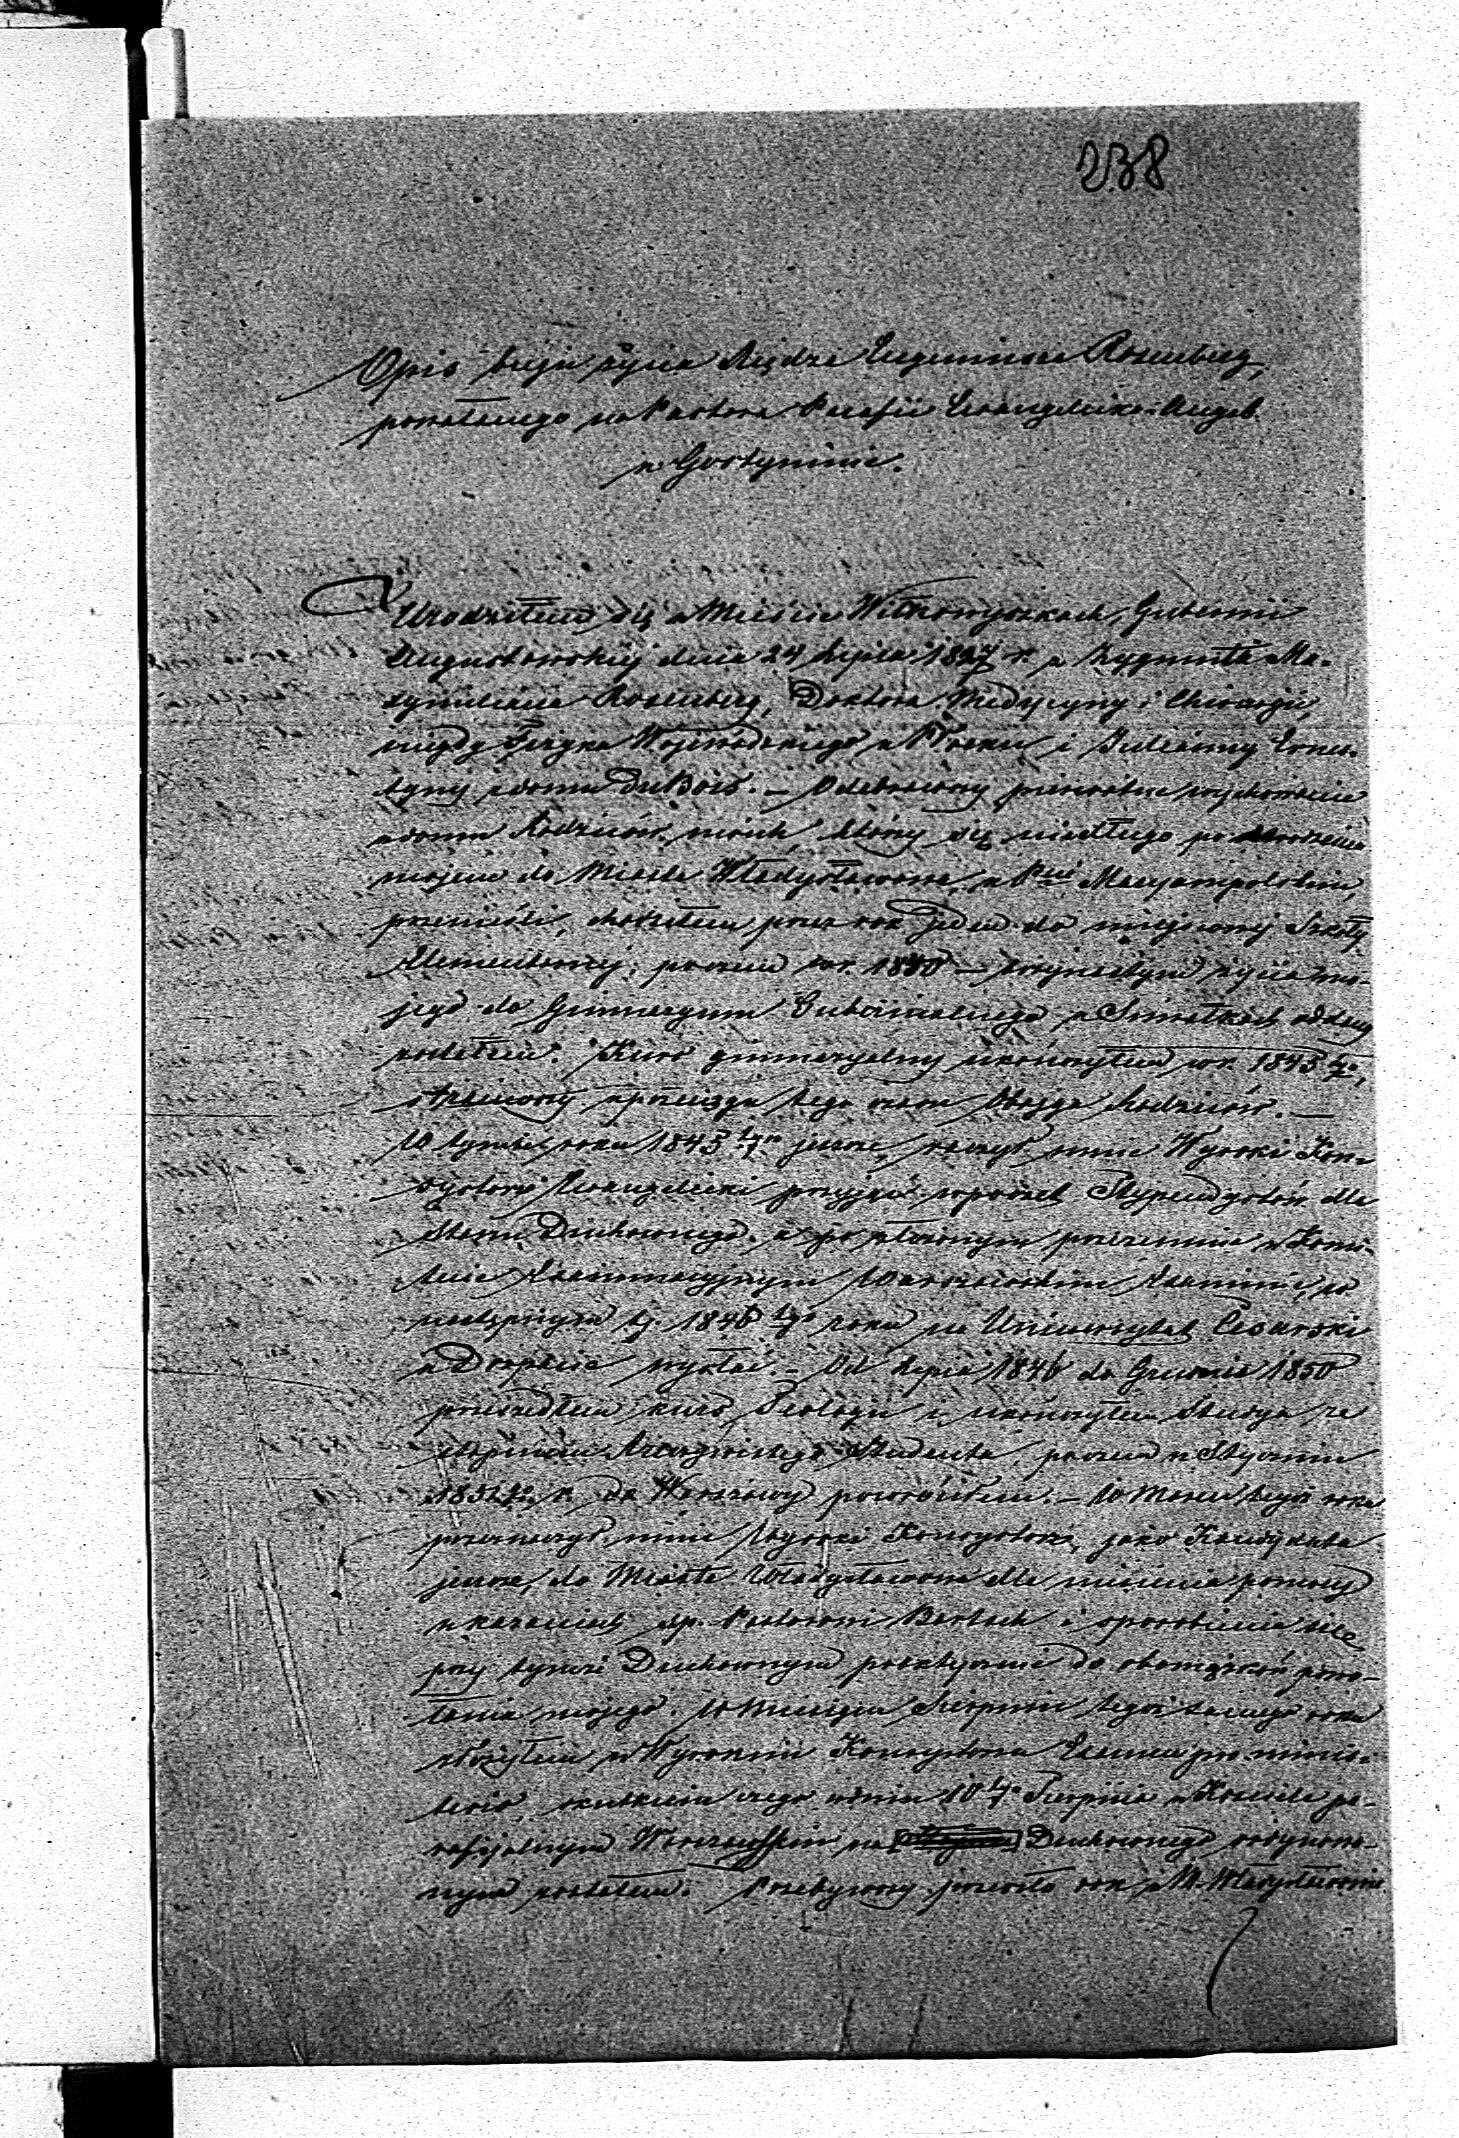 238
Opis biegu życia Księdza Eugeniusza Rosenberg,
powołanego na Pastora Parafii Ewangelicko-Augsb.
w Gostyninie.
Urodziłem się w Mieście Wiłkowyszkach, Gubernii
Augustowskiej dnia 24 Lipca 1827 r. z Zygmunta Ma-
xymiliana Rosenberg, Doktora Medycyny i Chirurgii,
niegdy Fizyka Wojewódzkiego w Płocku i Julianny Ernes-
tyny z domu DuBois. — Odebrawszy pierwotne wychowanie
w domu Rodziców moich, którzy się niedługo po urodzeniu
mojem do Miasta Władysławowa, w Pcie Maryampolskim,
przenieśli, chodziłem przez rok jeden do miejscowej Szkoły
Elementarnej; poczem w r. 1840 — życia mo-
jego do Gimnazyum Gubernialnego w Suwałkach oddany
zostałem. Kurs gimnazyalny ukończyłem w r. 1845tym,
straciwszy w przeciągu tego czasu Obojga Rodziców. —
W tymże roku 1845tym jeszcze, raczył mnie Wysoki Kon-
systorz Ewangelicki przyjąć w poczet Stypendystów dla
Stanu Duchownego, a po złożonym przezemnie w Komi-
tecie Examinacyjnym Warszawskim Examinie, w
następnym tj. 1846tym roku na Uniwersytet Cesarski
w Dorpacie wysłać. — Od Lipca 1846 do Grudnia 1850
przeszedłem kurs Teologii i ukończyłem Studya ze
stopniem Rzeczywistego Studenta, poczem w Styczniu
1851 r. do Warszawy powróciłem. — W Marcu tegoż roku
przeznaczył mnie Wysoki Konsystorz, jako Kandydata
jeszcze, do Miasta Władysławowa dla niesienia pomocy
w kazaniach śp. Pastorowi Bartsch i sposobienia się
przy tymże Duchownym praktycznie do obowiązków powo-
łania mojego. W Miesiącu Sierpniu tegoż samego roku
złożyłem w Wysokim Konsystorzu Examen pro minis-
terio, skutkiem czego w dniu 10tym Sierpnia w Kościele pa-
rafijalnym Warszawskim na Duchownego ordynowa-
nym zostałem. Przebywszy przeszło rok w M. Władysławowie